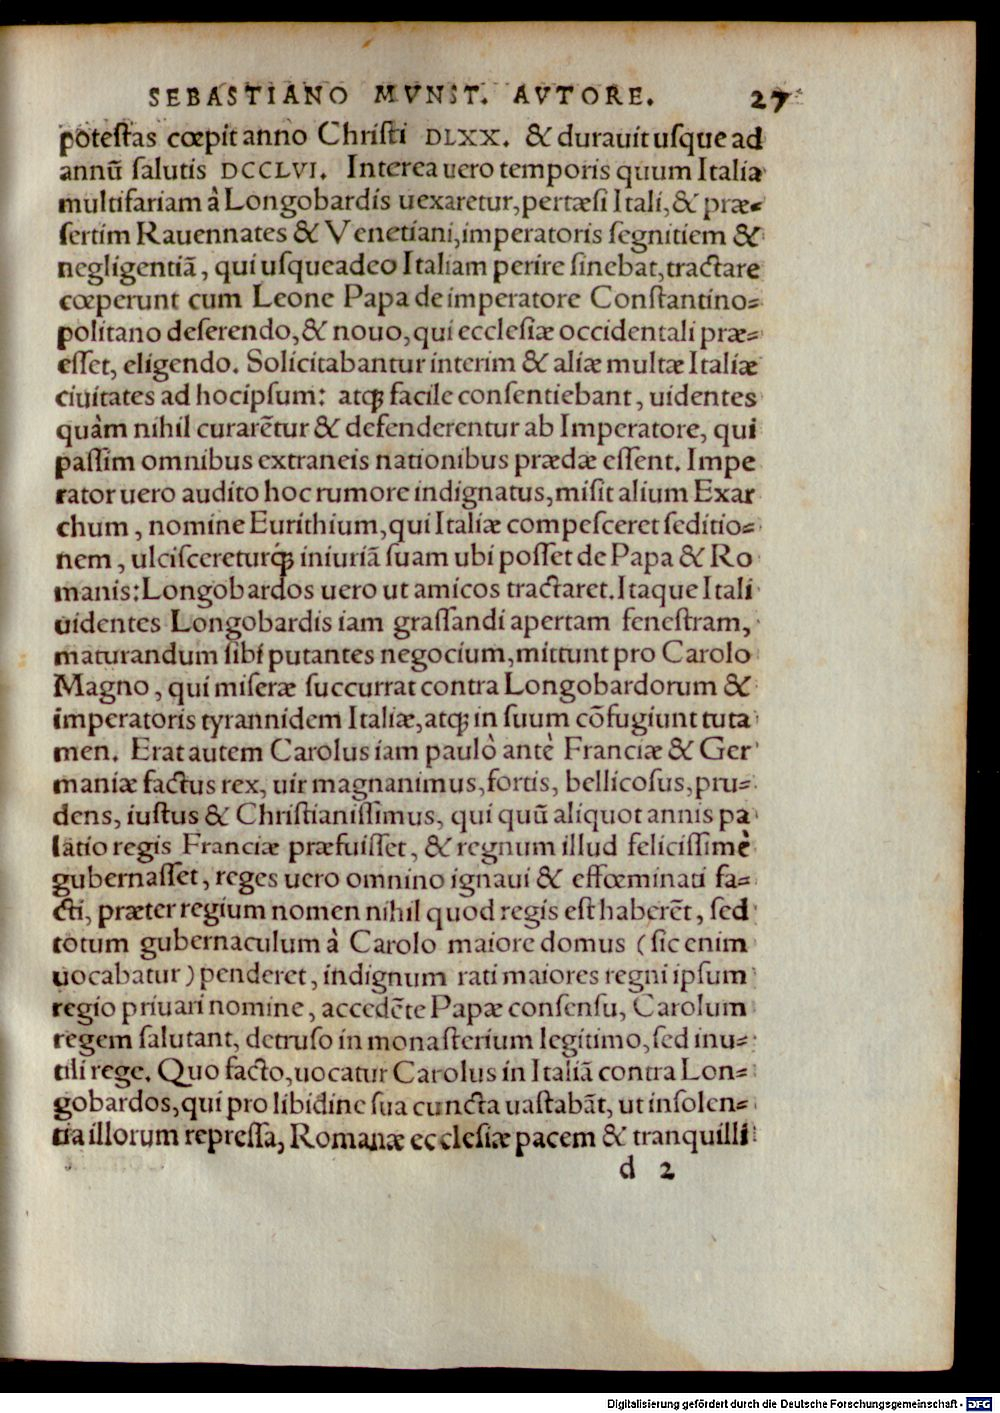 SEBASTIANO MVNST. AVTORE. 27
potestas cœpit anno Christi DLXX. & durauit usque ad
annũ salutis DCCLVI. Interea uero temporis quum Italia
multifariam à Longobardis uexaretur, pertæsi Itali, & præ-
sertim Rauennates & Venetiani, imperatoris segnitiem &
negligentiã, qui usqueadeo Italiam perire sinebat, tractare
cœperunt cum Leone Papa de imperatore Constantino-
politano deserendo, & nouo, qui ecclesiæ occidentali præ-
esset, eligendo. Solicitabantur interim & aliæ multæ Italiæ
ciuitates ad hocipsum: atq́ꝫ facile consentiebant, uidentes
quâm nihil curarẽtur & defenderentur ab Imperatore, qui
passim omnibus extraneis nationibus prædæ essent. Impe
rator uero audito hoc rumore indignatus, misit alium Exar
chum, nomine Eurithium, qui Italiæ compesceret seditio-
nem, ulcisceretuŕqꝫ iniuriã suam ubi posset de Papa & Ro
manis: Longobardos uero ut amicos tractaret. Itaque Itali
uidentes Longobardis iam grassandi apertam fenestram,
maturandum sibi putantes negocium, mittunt pro Carolo
Magno, qui miseræ succurrat contra Longobardorum &
imperatoris tyrannidem Italiæ, atqꝫ in suum cõfugiunt tuta
men. Erat autem Carolus iam paulò antè Franciæ & Ger
maniæ factus rex, uir magnanimus, fortis, bellicosus, pru-
dens, iustus & Christianissimus, qui quũ aliquot annis pa
latio regis Franciæ præfuisset, & regnum illud felicissimè
gubernasset, reges uero omnino ignaui & effœminati fa-
cti, præter regium nomen nihil quod regis est haberẽt, sed
totum gubernaculum à Carolo maiore domus (sic enim
uocabatur) penderet, indignum rati maiores regni ipsum
regio priuari nomine, accedẽte Papæ consensu, Carolum
regem salutant, detruso in monasterium legitimo, sed inu-
tili rege. Quo facto, uocatur Carolus in Italiã contra Lon-
gobardos, qui pro libidine sua cuncta uastabãt, ut insolen-
tia illorum repressa, Romanæ ecclesiæ pacem & tranquilli
d 2
Digitalisierung gefördert durch die Deutsche Forschungsgemeinschaft - DFG